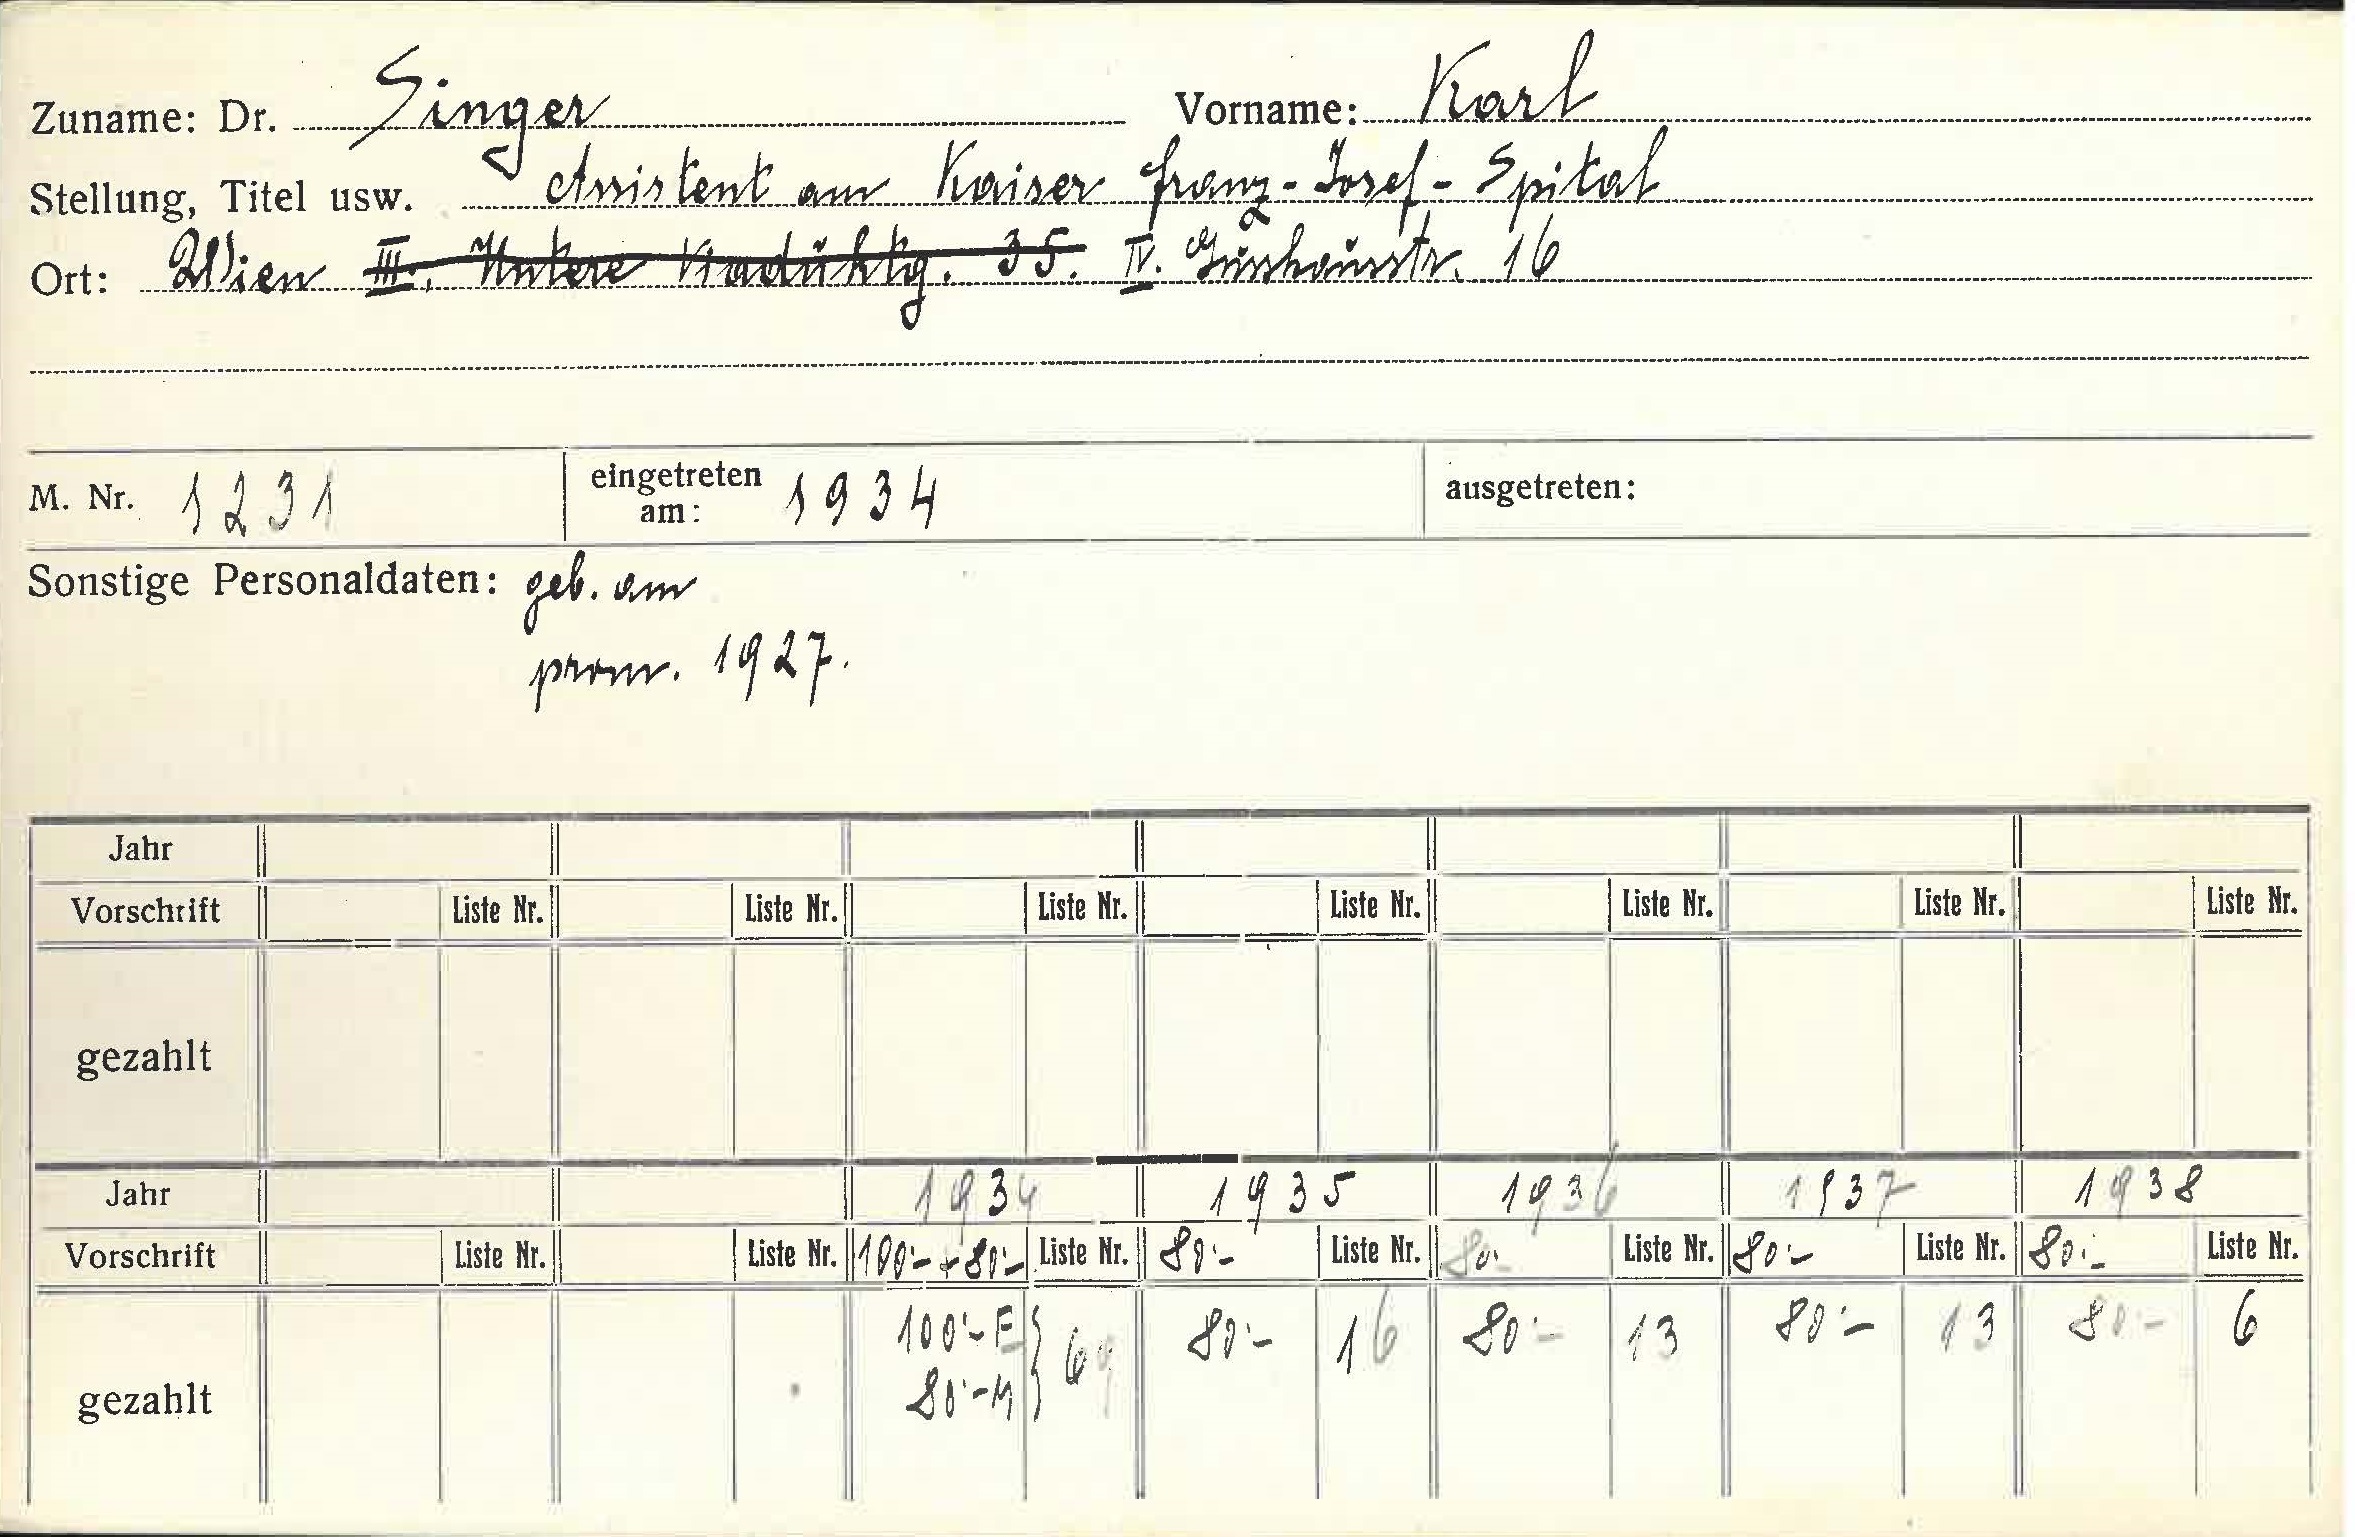 Zuname: Dr. Singer Vorname: Karl
Stellung, Titel usw. Assistent am Kaiser Franz-Josef-Spital
Ort: Wien III. Untere Viaduktg. 35. IV. Gusshausstr. 16
M. Nr. 1231 eingetreten am: 1934 ausgetreten:
Sonstige Personaldaten: geb. am
prom. 1927.
Jahr
Vorschrift Liste Nr. Liste Nr. Liste Nr. Liste Nr. Liste Nr. Liste Nr. Liste Nr.
gezahlt
Jahr 1934 1935 1936 1937 1938
Vorschrift Liste Nr. Liste Nr. 100'- + 80'- Liste Nr. 80'- Liste Nr. 80'- Liste Nr. 80'- Liste Nr. 80'- Liste Nr.
100'- E } 69 80'- 16 80'- 13 80'- 13 80'- 6
80'- M
gezahlt